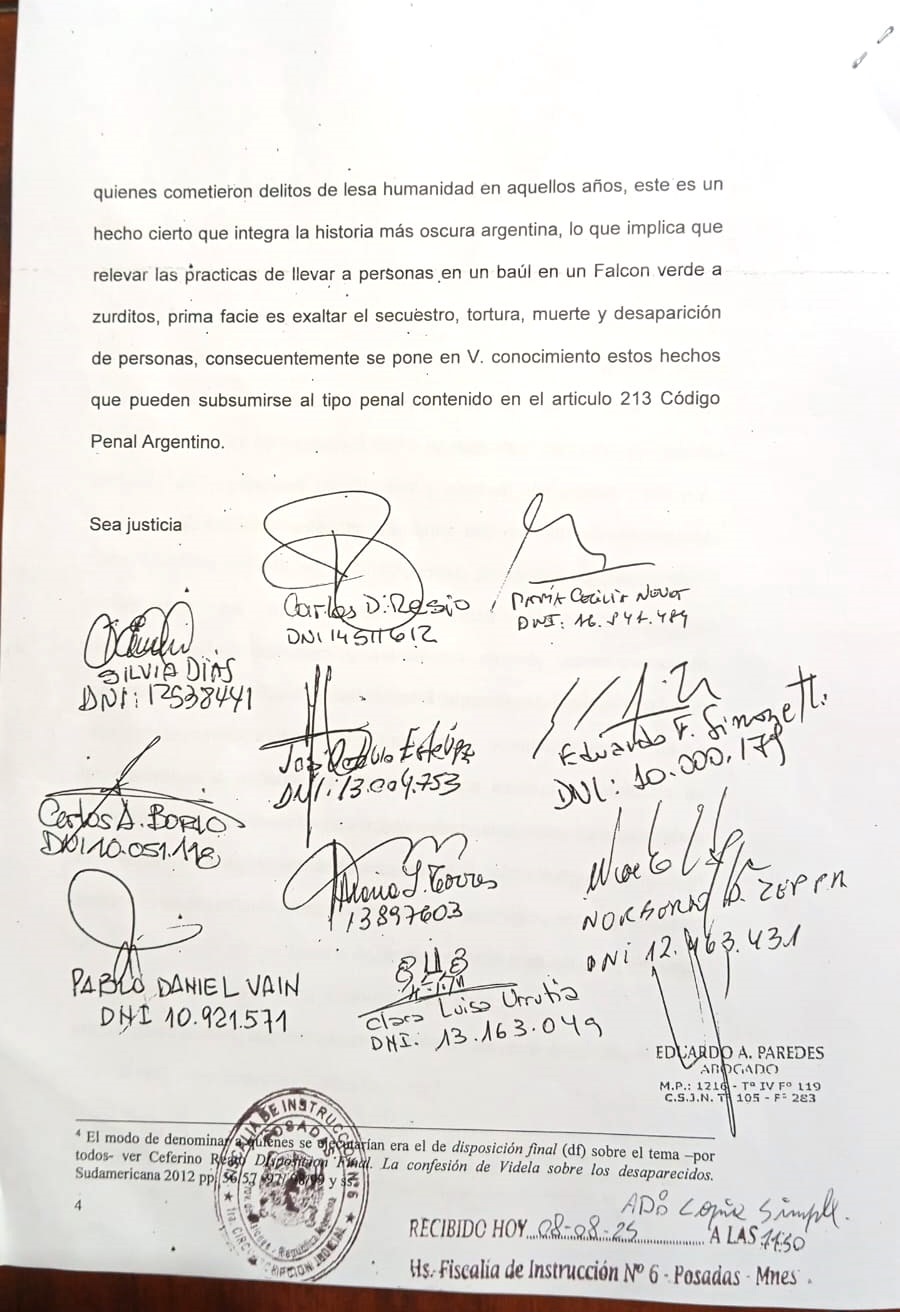 quienes cometieron delitos de lesa humanidad en aquellos años, este es un
hecho cierto que integra la historia más oscura argentina, lo que implica que
relevar las practicas de llevar a personas en un baúl en un Falcon verde a
zurditos, prima facie es exaltar el secuestro, tortura, muerte y desaparición
de personas, consecuentemente se pone en V. conocimiento estos hechos
que pueden subsumirse al tipo penal contenido en el articulo 213 Código
Penal Argentino.
Sea justicia
Carlos Di Resio
DNI 14511612
DNI: 16.841.489
SILVIA DIAS
DNI: 12538441
DNI: 13.004.753
Eduardo F. Simonetti
DNI: 10.000.179
Carlos A. BORIO
DNI 10.051.118
Torres
13897603
NORBERTO D. ZEPPA
DNI 12.463.431
PABLO DANIEL VAIN
DNI 10.921.571
Clara Luisa Urrutia
DNI: 13.163.049
EDUARDO A. PAREDES
ABOGADO
M.P.: 1216 - Tº IV Fº 119
C.S.J.N. Tº 105 - Fº 283
4 El modo de denominar a quienes se ejecutarían era el de disposición final (df) sobre el tema –por
todos- ver Ceferino Reato Disposición Final. La confesión de Videla sobre los desaparecidos.
Sudamericana 2012 pp 56/57, 97/98/99 y ss
4
Copia Simple.
RECIBIDO HOY 08-08-25 A LAS 11:50
Hs. Fiscalía de Instrucción Nº 6 - Posadas - Mnes.